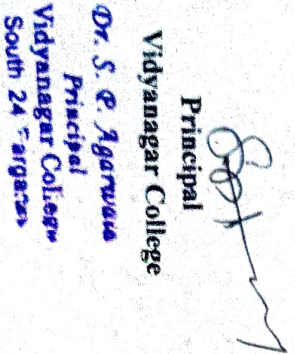 Principal
Vidyanagar College
Dr. S. P. Agarwala
Principal
Vidyanagar College
South 24 Parganas